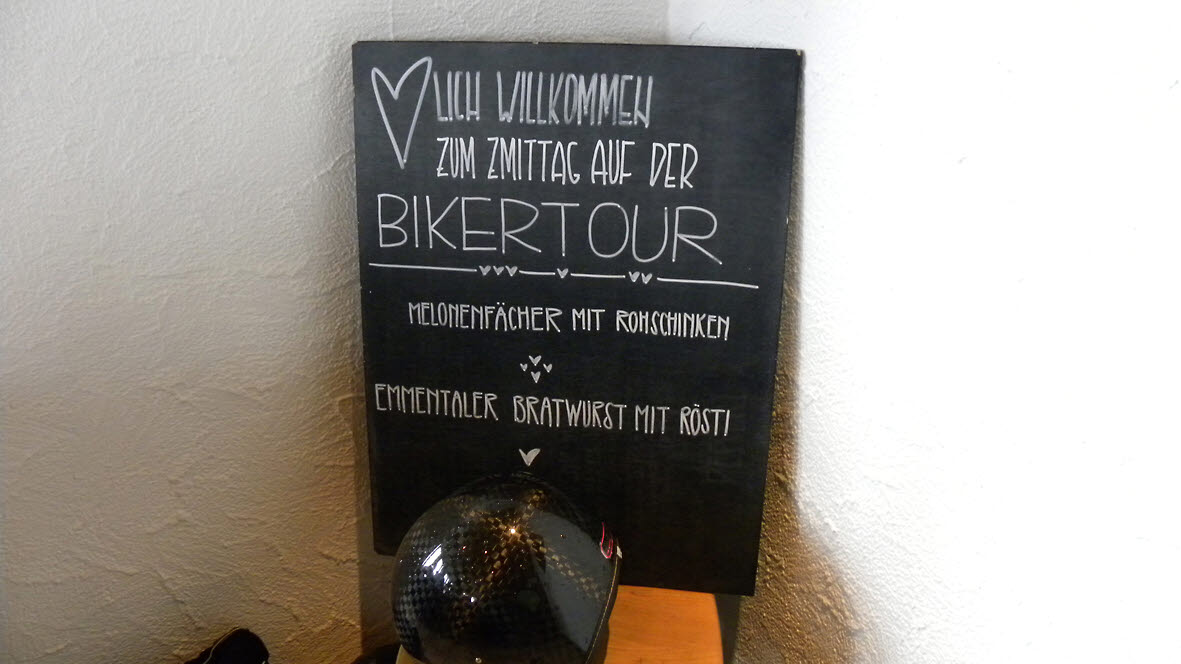 LICH WILLKOMMEN
ZUM ZMITTAG AUF DER
BIKERTOUR
MELONENFÄCHER MIT ROHSCHINKEN
EMMENTALER BRATWURST MIT RÖSTI